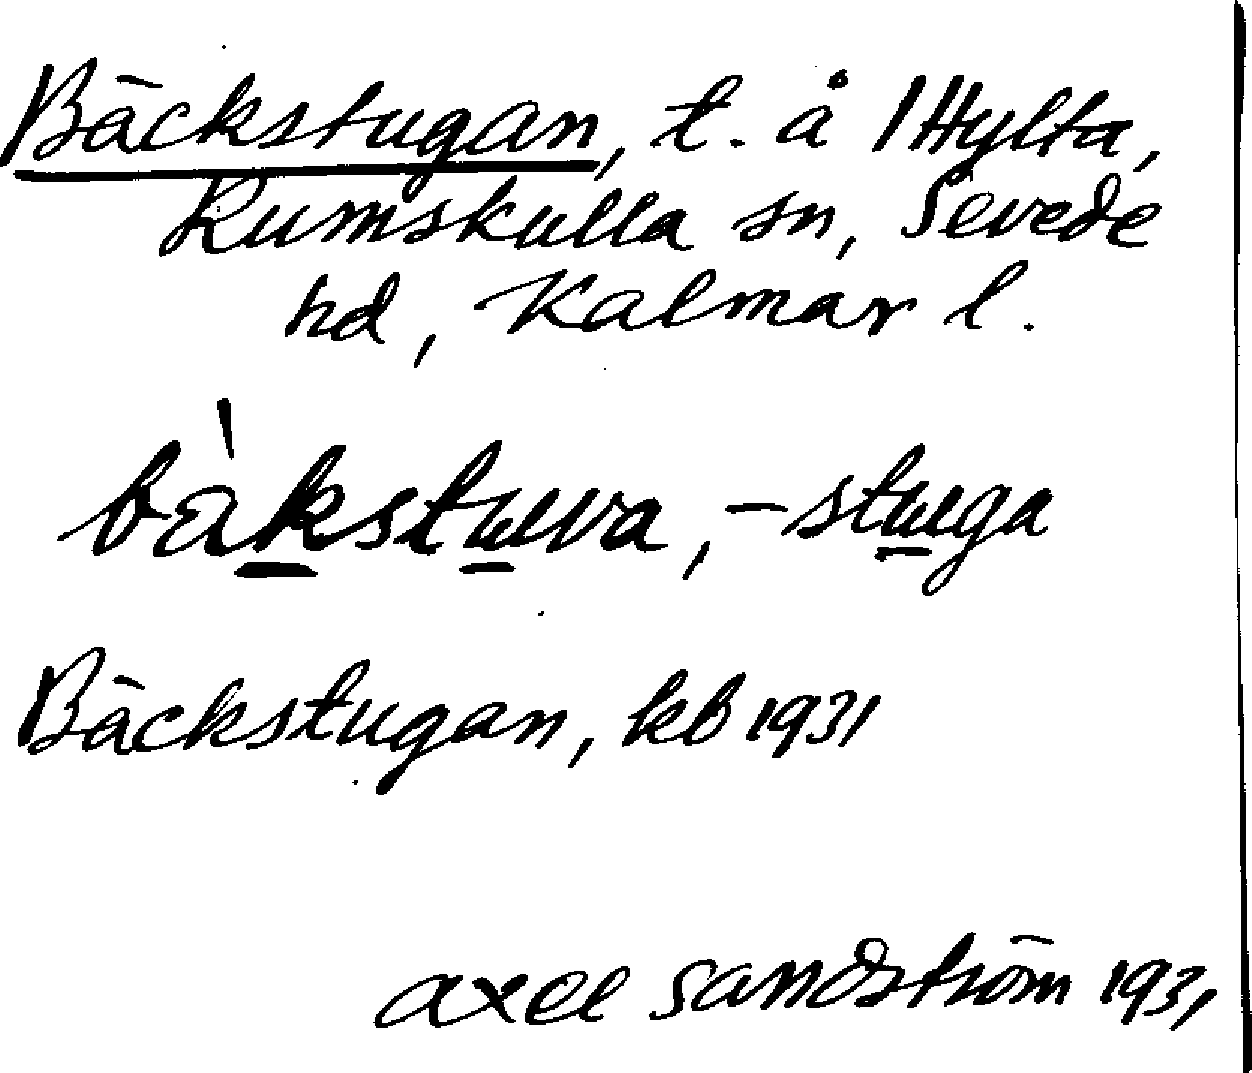 Bäckstugan, t. å Hylta,
Rumskulla sn, Sevede
hd, Kalmar l.
bàkstuva, -stuga
Bäckstugan, kb 1931
Axel Sandström 1931